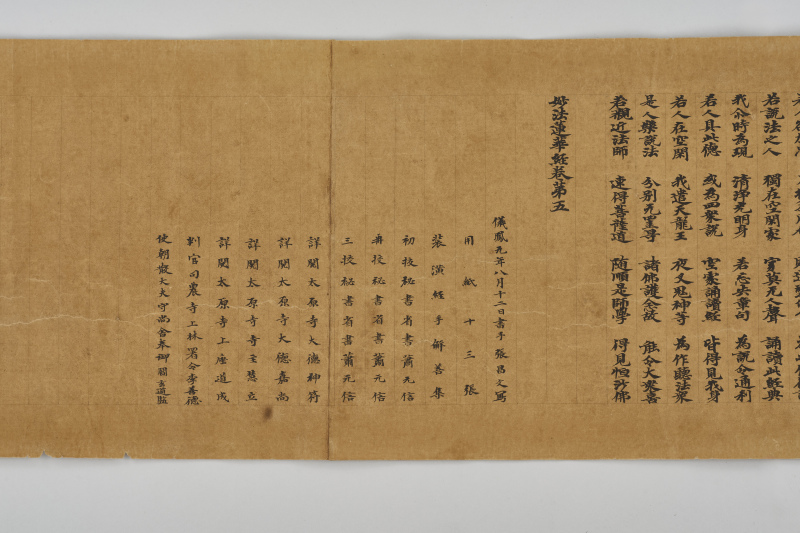 若說法之人 獨在空閑處 寂莫无人聲 誦讀此經典
我尒時為現 清淨光明身 若忘失章句 為說令通利
若人具此德 或為四衆說 空處誦讀經 皆得見我身
若人在空閑 我遣天龍王 夜叉鬼神等 為作聽法衆
是人樂說法 分別无罣㝵 諸佛護念故 能令大衆喜
若親近法師 速得菩薩道 随順是師學 得見恒沙佛
妙法蓮華經卷第五
儀鳳元年八月十二日書手張昌文寫
用紙十三張
裝潢經手解善集
初挍秘書省書蕭元信
再挍秘書省書蕭元信
三挍秘書省書蕭元信
詳閱太原寺大德神符
詳閱太原寺大德嘉尚
詳閱太原寺寺主慧立
詳閱太原寺上座道成
判官司農寺上林署令李善德
使朝散大夫守尚舍奉御閻玄道監